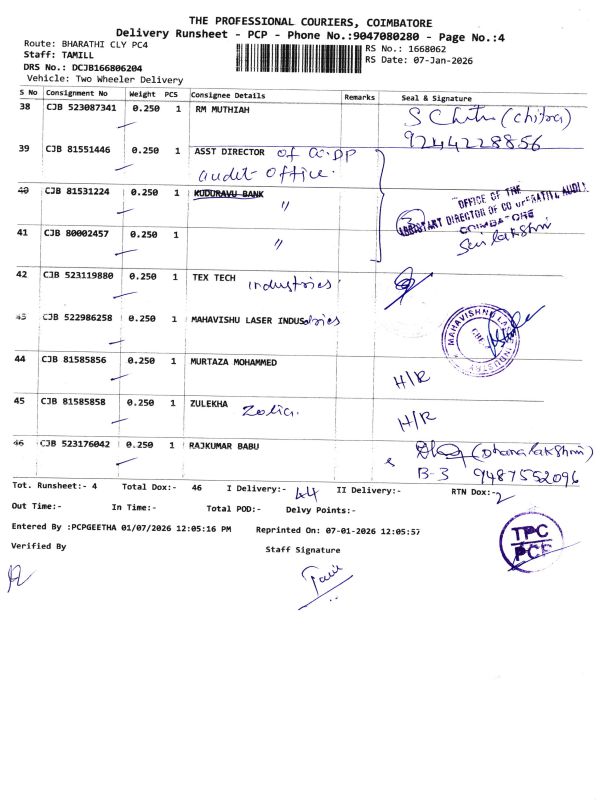 THE PROFESSIONAL COURIERS, COIMBATORE
Delivery Runsheet - PCP - Phone No.:9047080280 - Page No.:4
Route: BHARATHI CLY PC4
Staff: TAMILL
DRS No.: DCJB166806204
Vehicle: Two Wheeler Delivery
RS No.: 1668062
RS Date: 07-Jan-2026
S No Consignment No Weight PCS Consignee Details Remarks Seal & Signature
38 CJB 523087341 0.250 1 RM MUTHIAH S Chitra (chitra)
9244228856
39 CJB 81551446 0.250 1 ASST DIRECTOR of co-op
audit office.
40 CJB 81531224 0.250 1 KUDURAVU BANK
"
OFFICE OF THE
ASSISTANT DIRECTOR OF CO OPERATIVE AUDIT
COIMBATORE
Sri lakshmi
41 CJB 80002457 0.250 1
"
42 CJB 523119880 0.250 1 TEX TECH industries
43 CJB 522986258 0.250 1 MAHAVISHU LASER INDUSdries
MAHAVISHNU LASER INDUSTRY
44 CJB 81585856 0.250 1 MURTAZA MOHAMMED H/R
45 CJB 81585858 0.250 1 ZULEKHA Zolia. H/R
46 CJB 523176042 0.250 1 RAJKUMAR BABU (Dhanalakshmi)
B-3 9487552096
Tot. Runsheet:- 4 Total Dox:- 46 I Delivery:- 44 II Delivery:- RTN Dox:- 2
Out Time:- In Time:- Total POD:- Delvy Points:-
Entered By :PCPGEETHA 01/07/2026 12:05:16 PM Reprinted On: 07-01-2026 12:05:57
Verified By Staff Signature
TPC
PCP